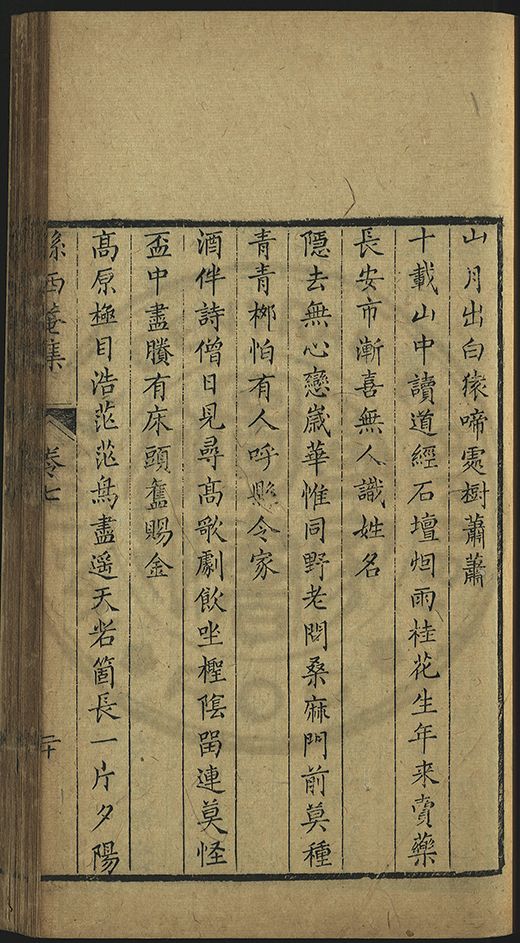 山月出白猿啼處樹蕭蕭
十載山中讀道經石壇烟雨桂花生年來賣藥
長安市漸喜無人識姓名
隱去無心戀歲華惟同野老問桑麻門前莫種
青青栁怕有人呼縣令家
酒伴詩僧日見尋髙歌劇飲坐檉隂畱連莫怪
盃中盡賸有床頭舊賜金
髙原極目浩茫茫鳥盡遥天若箇長一片夕陽
孫西菴集
卷七
二十